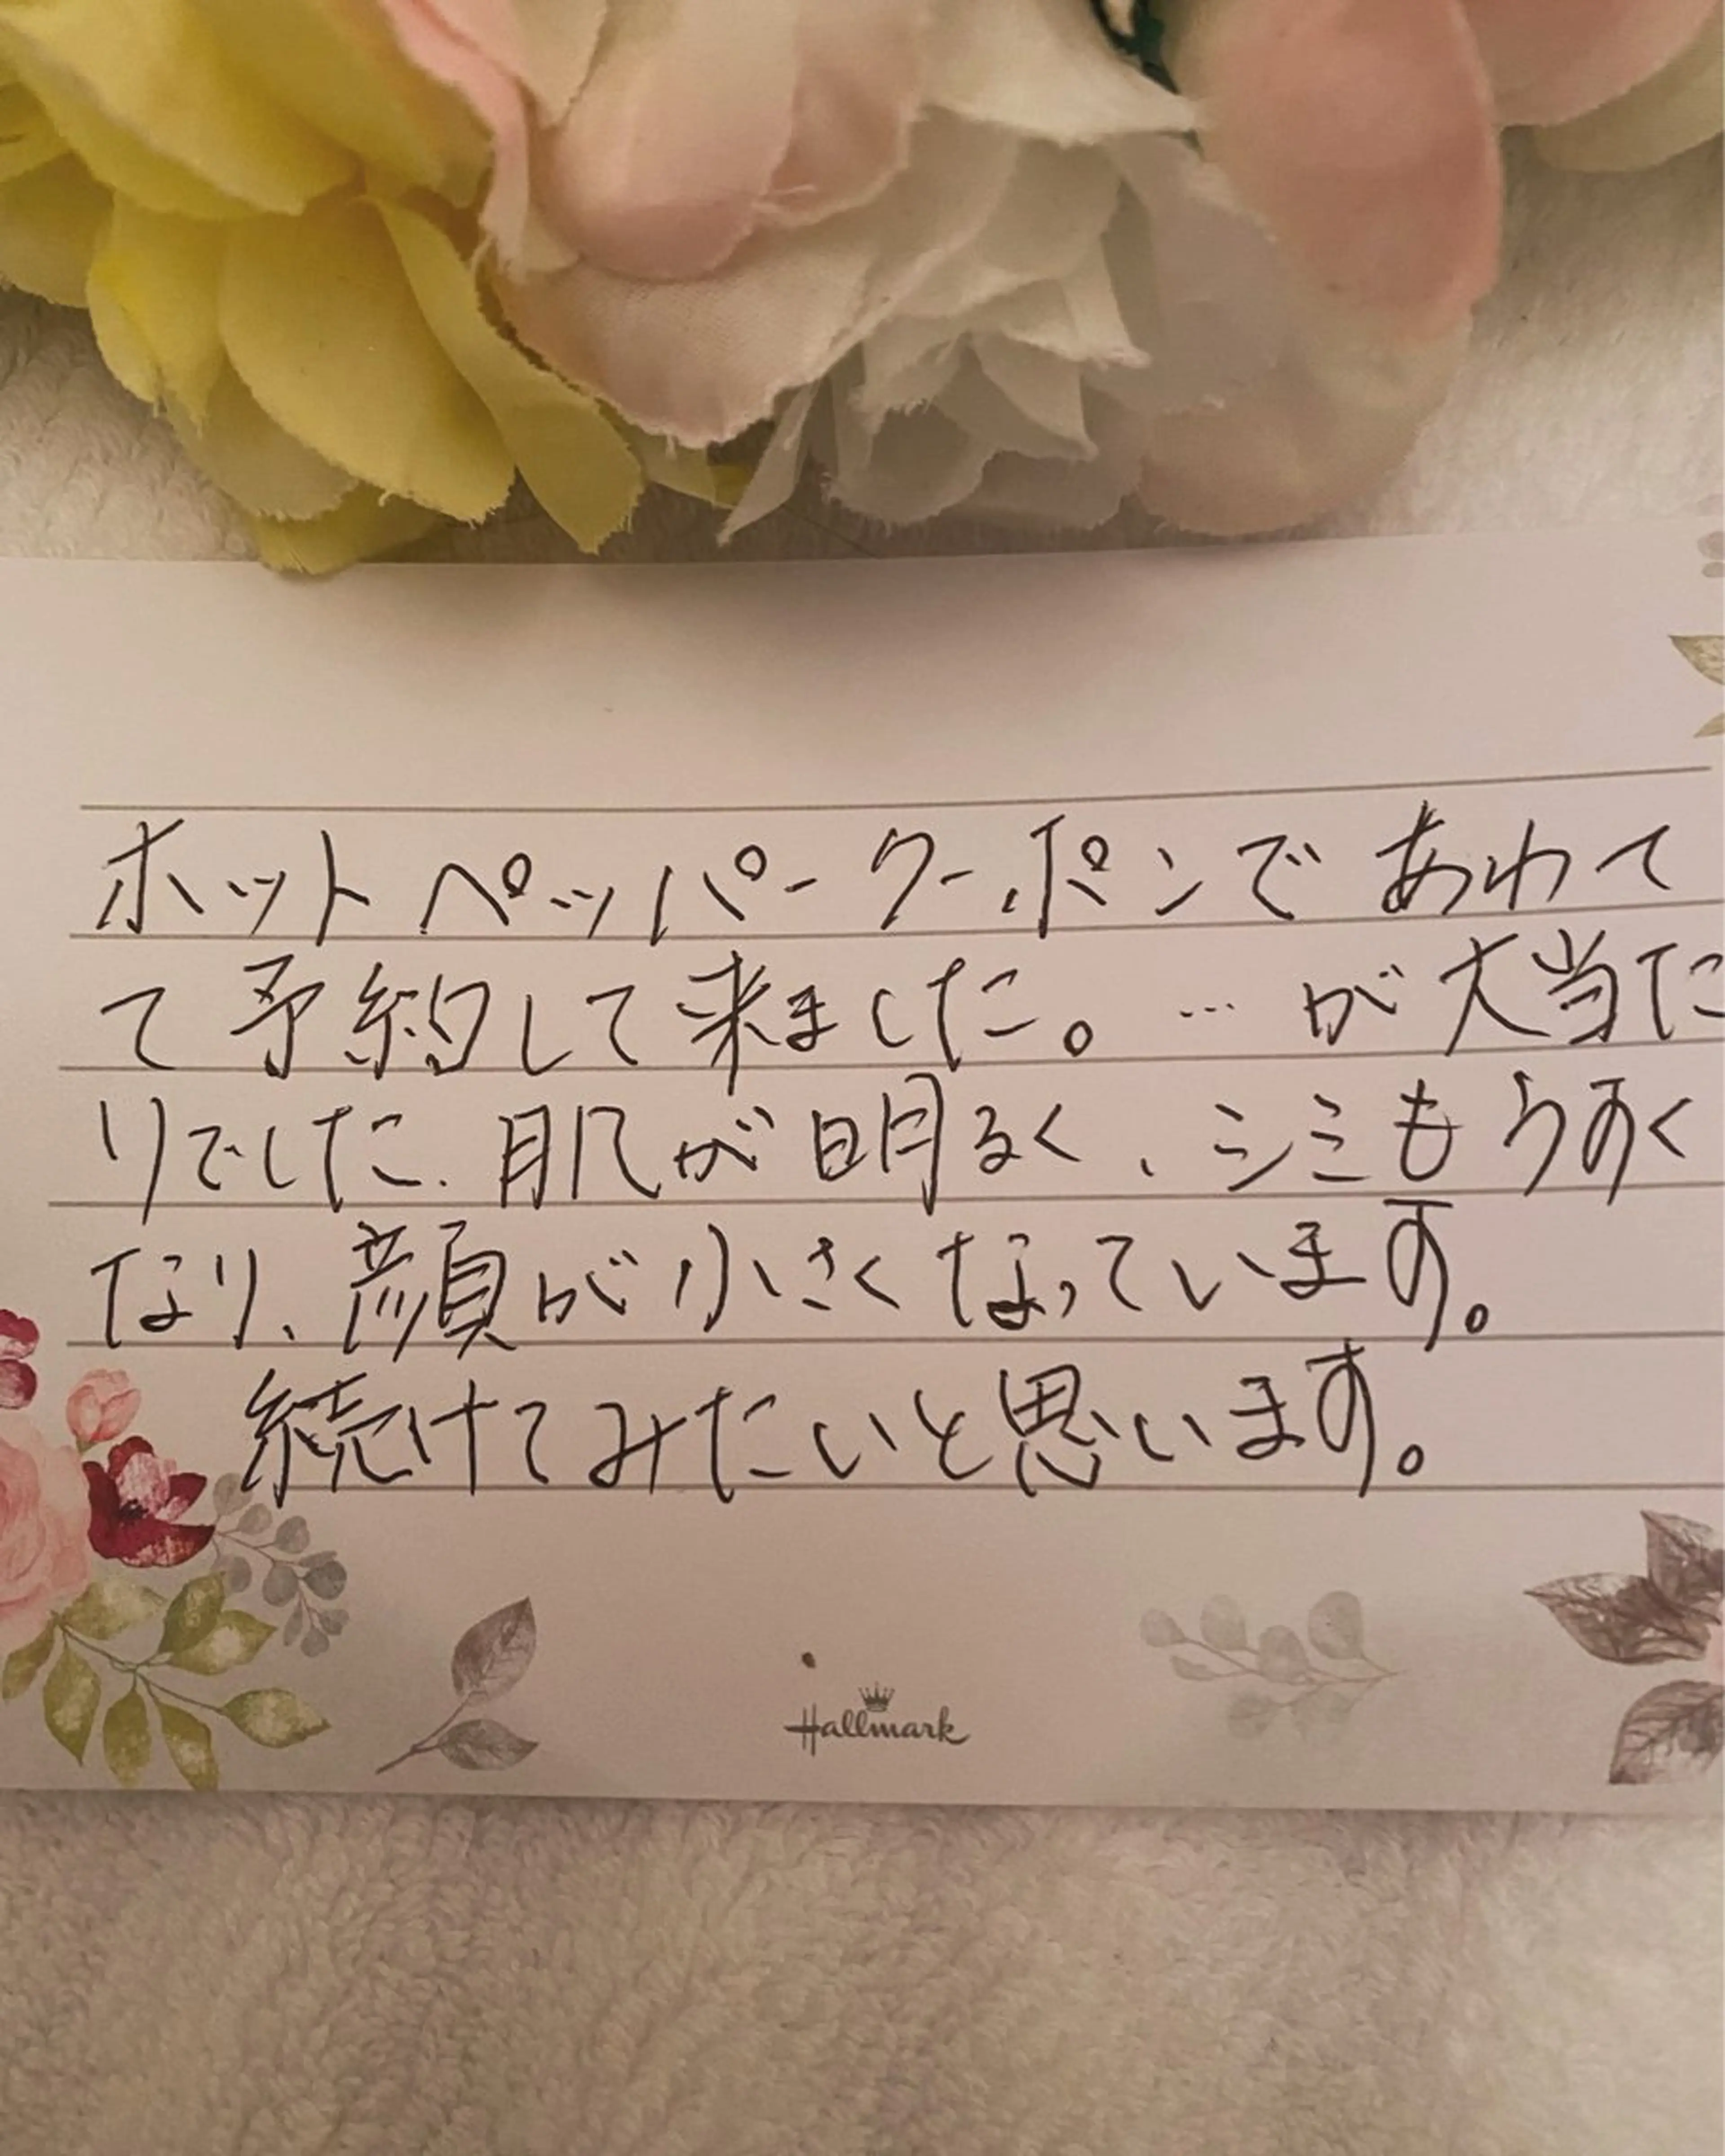 ホットペッパークーポンであわて
て予約して来ました。…が大当た
りでした、肌が明るく、シミもうすく
なり、顔が小さくなっています。
続けてみたいと思います。
Hallmark